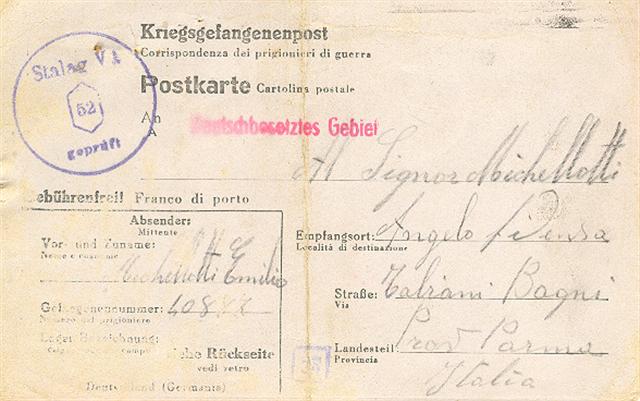 Kriegsgefangenenpost
Corrispondenza dei prigionieri di guerra
Postkarte Cartolina postale
Stalag V A
52
geprüft
An
A
Deutschbesetztes Gebiet
Al Signor Michellotti
Gebührenfrei! Franco di porto
Absender:
Mittente
Vor- und Zuname:
Nome e cognome
Michellotti Emilio
Gefangenennummer:
Numero del prigioniero
Lager-Bezeichnung:
siehe Rückseite
vedi retro
Deutschland (Germania)
Empfangsort: Angelo
Località di destinazione
Straße: Bagni
Via
Landesteil: Prov Parma
Provincia
Italia